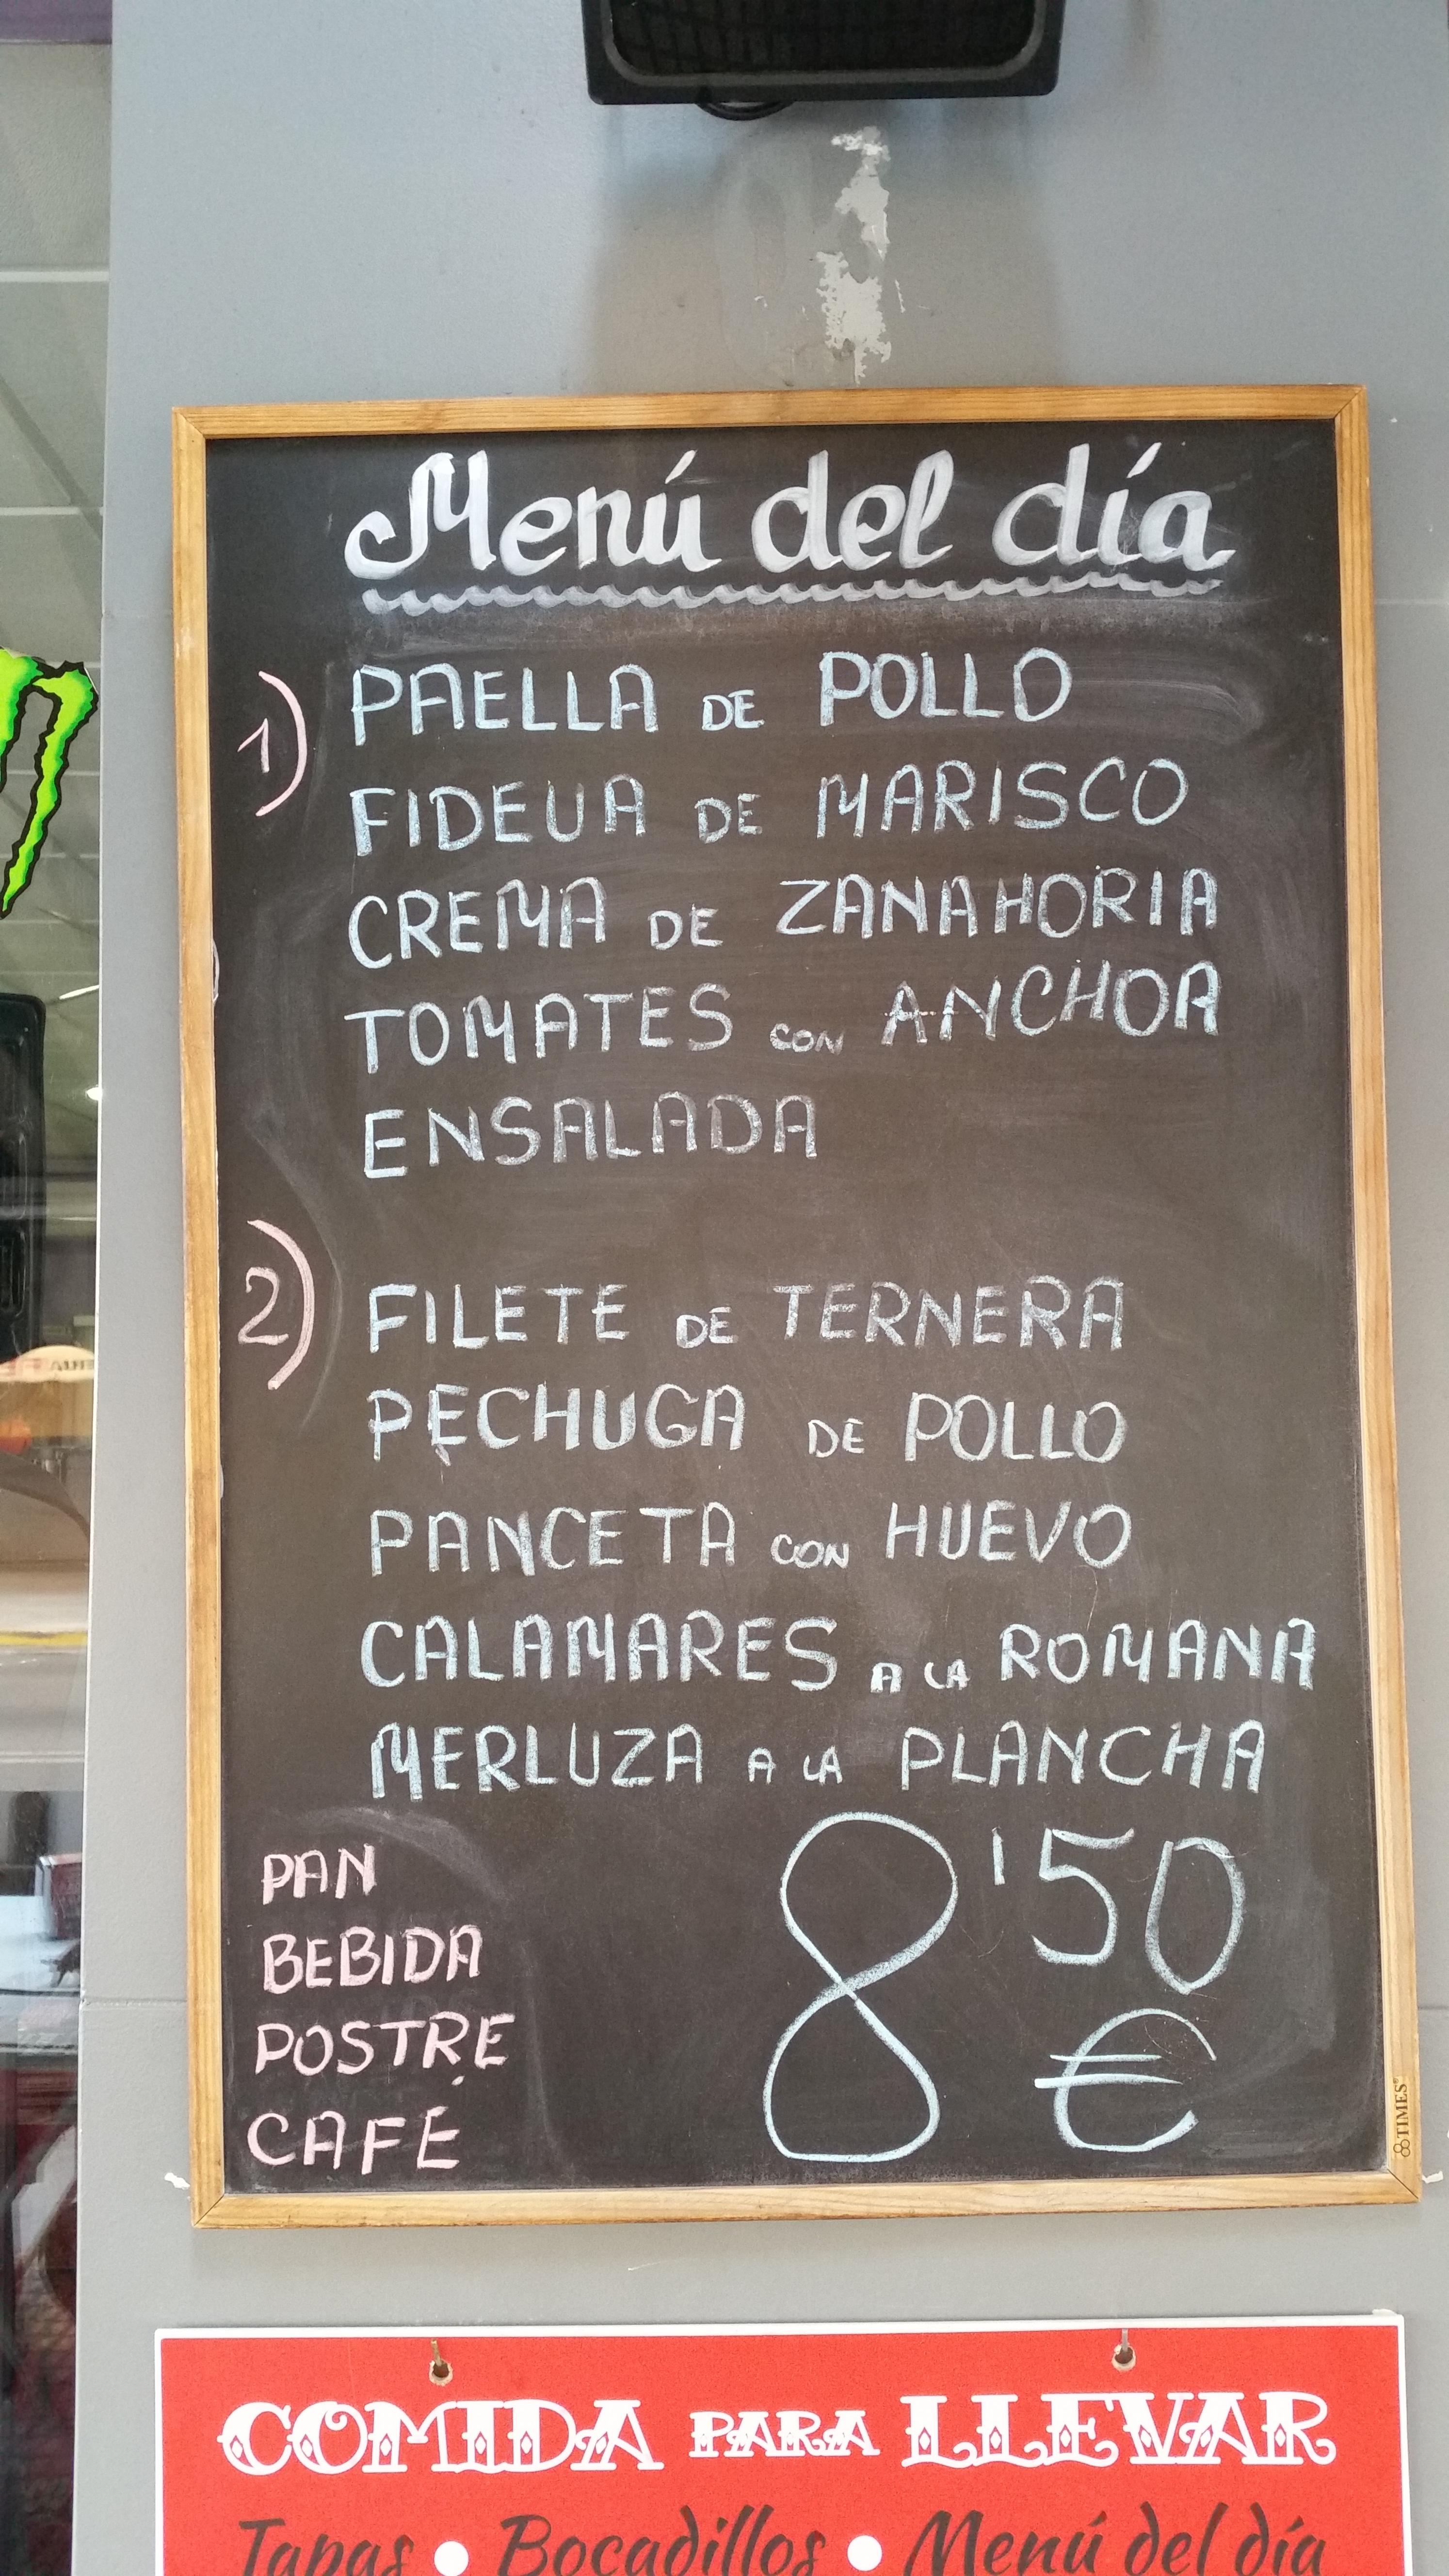 Menú del día
1) PAELLA DE POLLO
FIDEUA DE MARISCO
CREMA DE ZANAHORIA
TOMATES CON ANCHOA
ENSALADA
2) FILETE DE TERNERA
PECHUGA DE POLLO
PANCETA CON HUEVO
CALAMARES A LA ROMANA
MERLUZA A LA PLANCHA
PAN
BEBIDA
POSTRE
CAFE
8'50
€
TIMES
COMIDA PARA LLEVAR
Tapas • Bocadillos • Menú del día